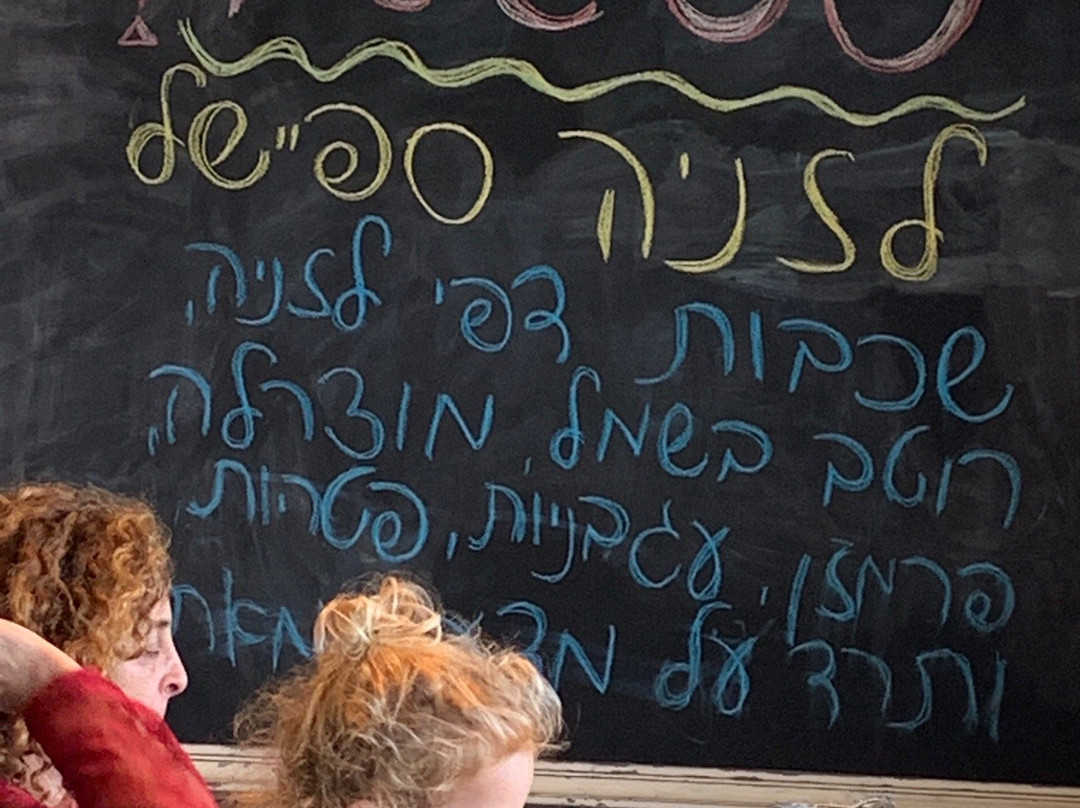 לזניה ספ"של
שכבות דפי לזניה,
רוטב בשמל, מוצרלה,
פרמזן, עגבניות, פטריות
ותרד על